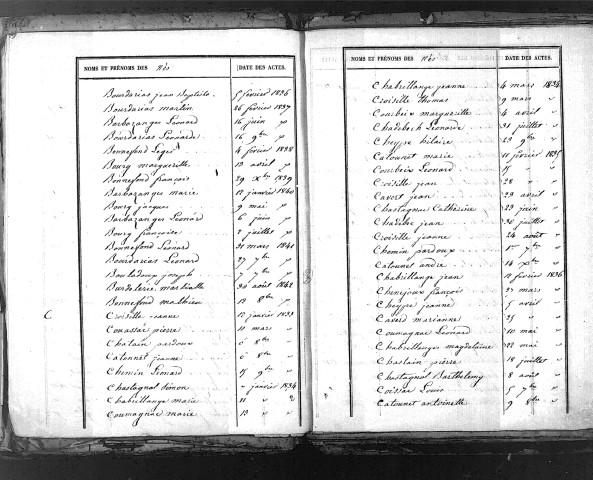 NOMS ET PRÉNOMS DES Nés DATE DES ACTES.
Bourdarias jean Baptiste 5 février 1836
Bourdarias martin 26 février 1837
Barbazanges Léonard 16 juin "
Bourdarias Léonarde 16 9bre "
Bonnefond Léger 4 février 1838
Bourg marguerite 13 avril "
Bonnefond françois 29 Xbre 1839
Barbazanges marie 12 janvier 1840
Bourg jacques 9 mai "
Barbazanges Léonard 6 juin "
Bourg françoise 2 juillet "
Bonnefond Léonard 31 mars 1841
Bourdarias Léonard 27 7bre "
Bouladoux joseph 7 7bre "
Burdelerie martialle 30 août 1842
Bonnefond mathieu 12 8bre "
C Croisille 12 janvier 1833
Couassac pierre 11 mars "
Chatain pardoux 6 8bre "
Catounet jeanne 6 8bre "
Chemin Léonard 15 9bre "
Chastagnol Simon janvier 1834
Chabrillange marie 11 "
Coumagnac marie 13 " "
NOMS ET PRÉNOMS DES Nés DATE DES ACTES.
Chabrillange jeanne 4 mars 1834
Croisille thomas 9 mars "
Courbeix marguerite 4 avril "
Chadebech Léonarde 31 juillet "
Cheyre hilaire 23 9bre "
Catounet marie 11 février 1835
Courbeix Léonard 15 "
Croisille jean 28 "
Cavert jean 29 avril "
Chastagnac Cathérine 23 juin "
Chadebec jean 30 juillet "
Croisille jeanne 24 août "
Chemin pardoux 1er 7bre "
Catounet andré 14 Xbre "
Chabrillange jean 12 février 1836
Chenejoux françois 27 mars "
Cheyre jeanne 5 avril "
Caverd marianne 25 "
Coumagnac Léonard 10 mai "
Chabrillange magdelaine 22 mai "
Chastain pierre 18 juillet "
Chastagnol Barthelemy 8 août "
Coissac Louis 5 7bre "
Catounet antoinette 9 8bre "